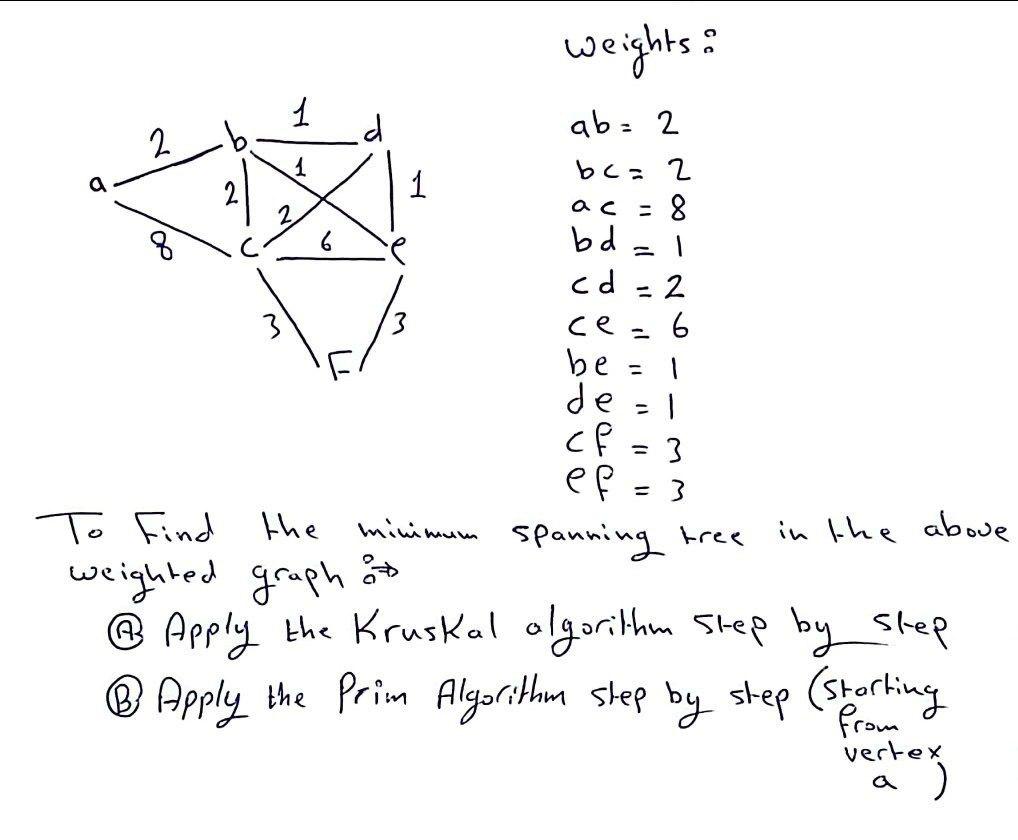 Weights:
1
2
b
d
ab = 2
a
1
2
1
bc = 2
2
ac = 8
8
c
6
e
bd = 1
cd = 2
3
3
ce = 6
F
be = 1
de = 1
cf = 3
ef = 3
To Find the minimum spanning tree in the above
weighted graph :⇒
Ⓐ Apply the Kruskal algorithm step by step
Ⓑ Apply the Prim Algorithm step by step (starting
from
vertex
a )